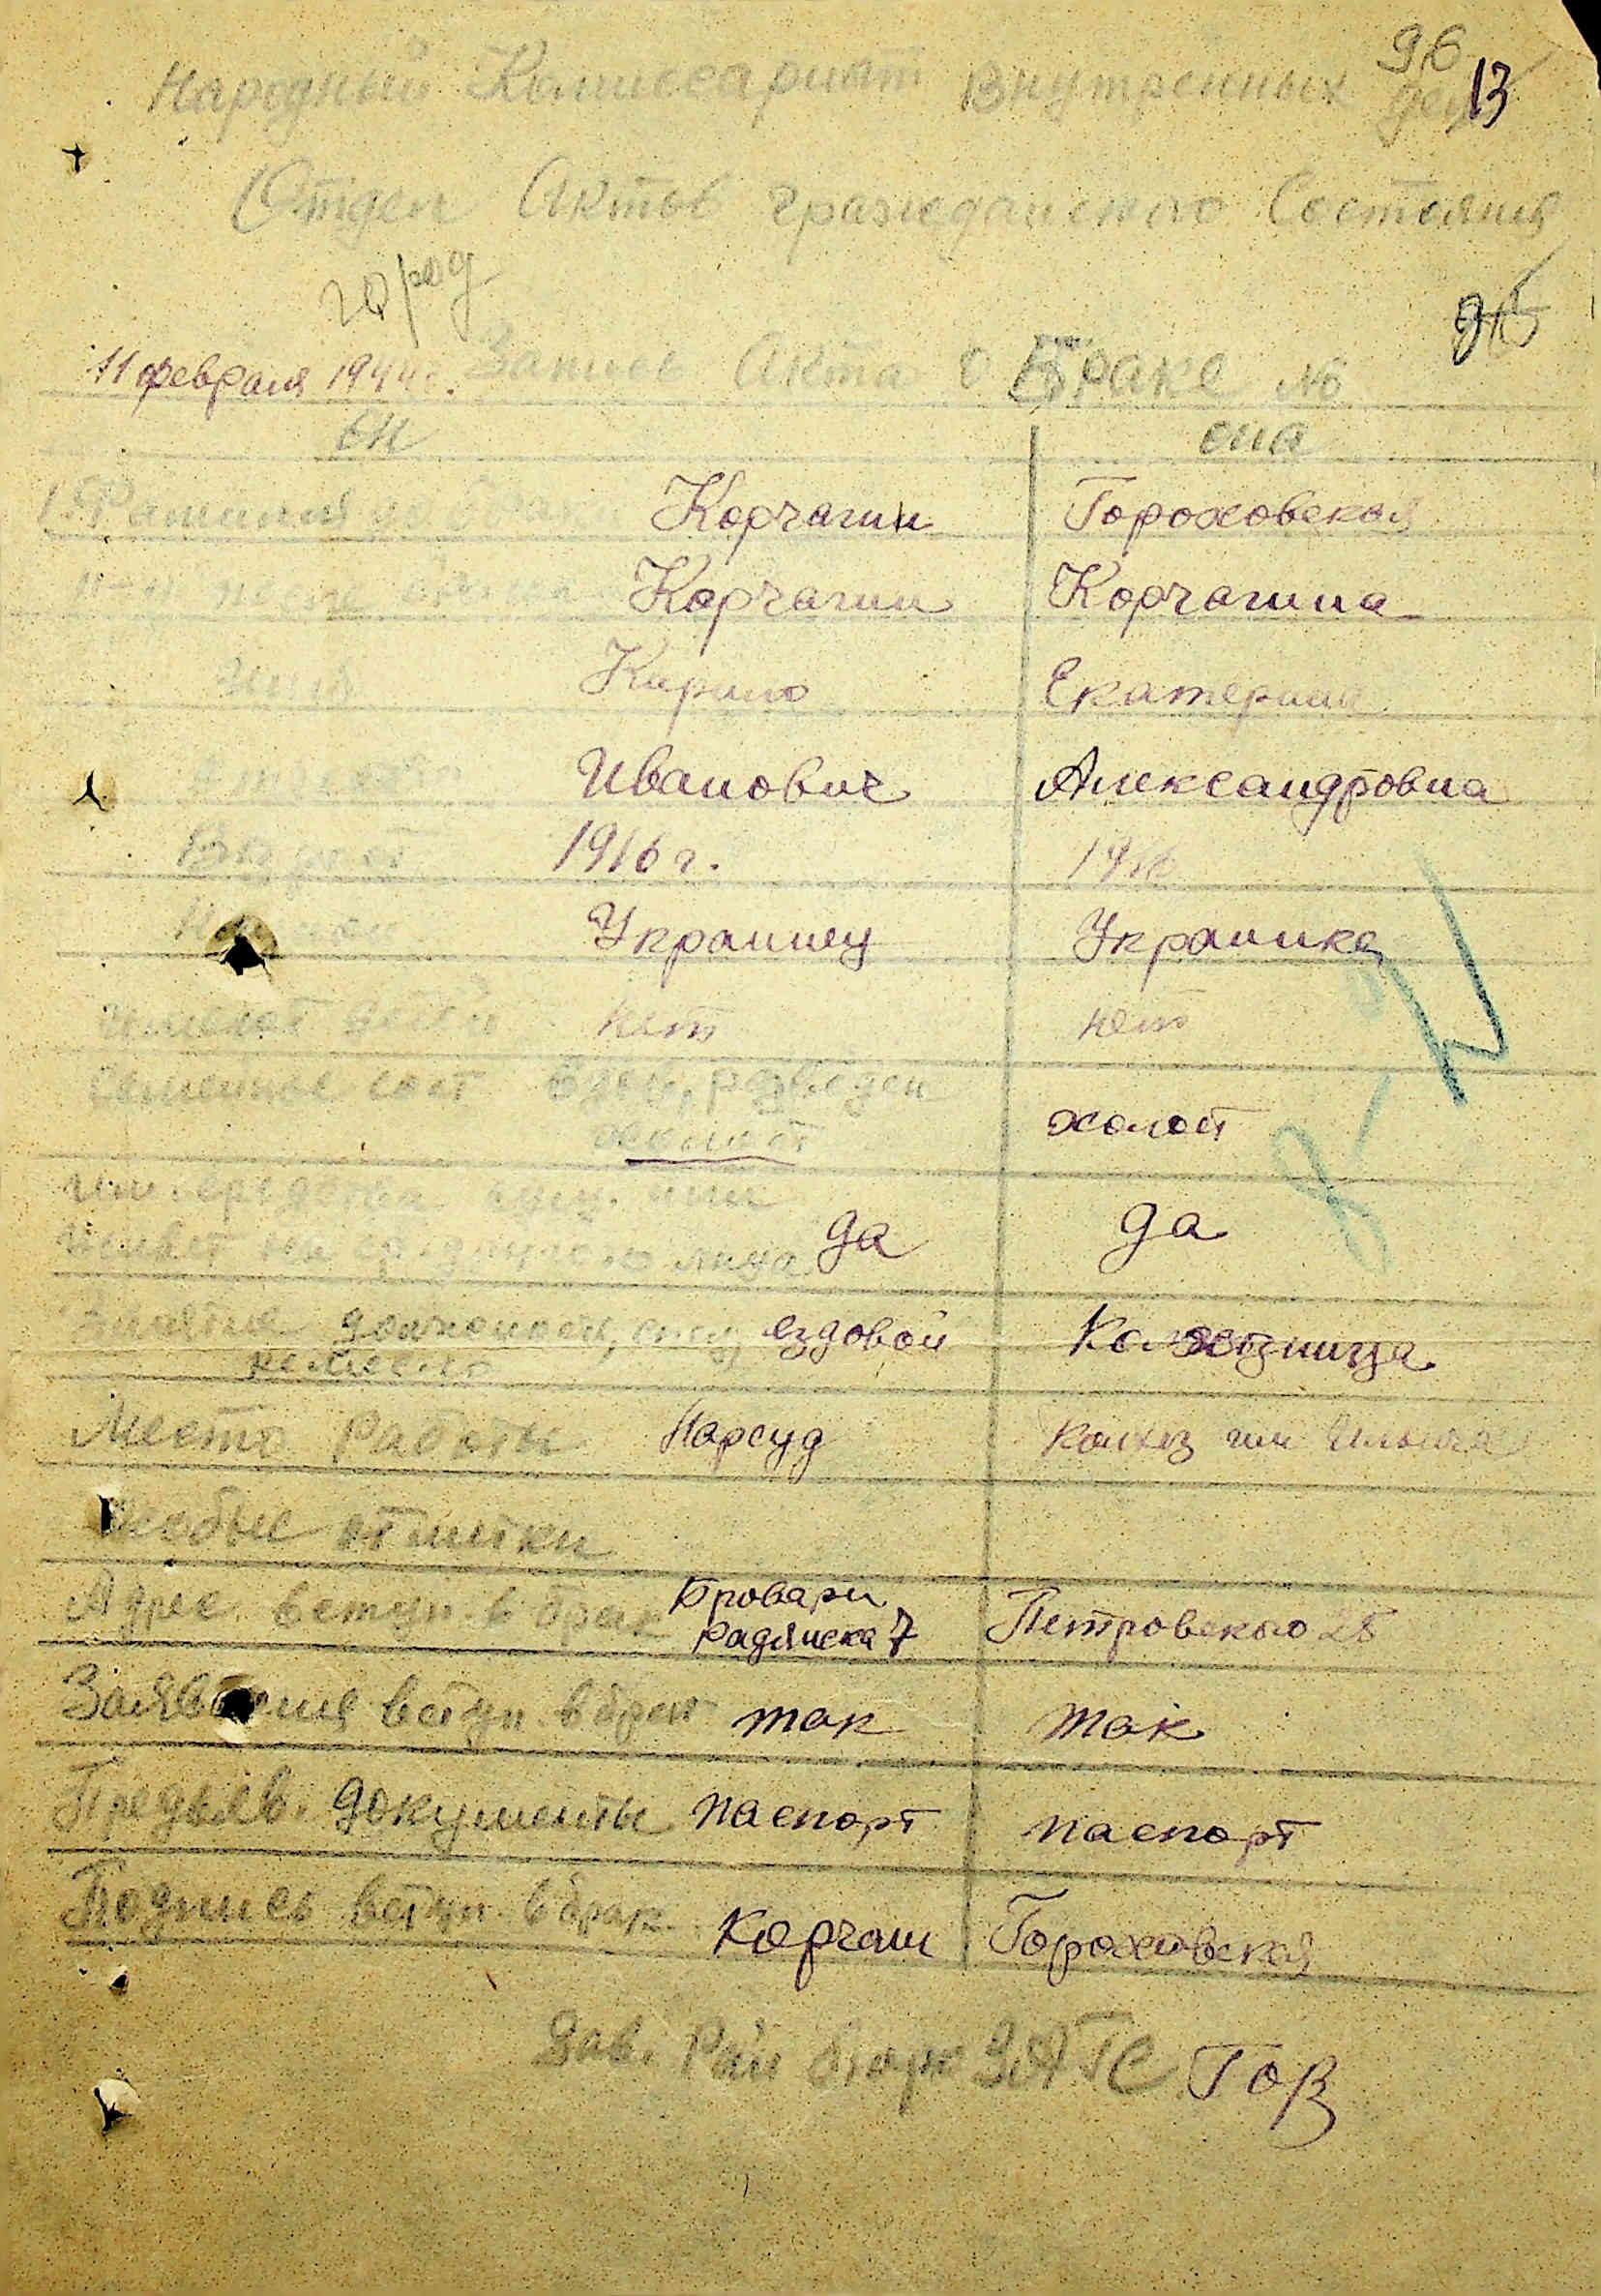 96
Народный Комиссариат Внутренных Дел 13
Отдел Акты гражданского Состояния
город
11 февраля 1944 г. Запись Акта о Браке №
он она
Фамилия до Корчагин Гороховская
Корчагин Корчагина
Имя Кирило Екатерина
Отчество Иванович Александровна
Возраст 1916 г. 1916
Украинец Украинка
Имеют детей нет нет
Семейное сост вдов, разведен
холост холост
им. средства сущ. или
живет на средства лица да да
Занятие должность, спец ездовой Колхозница
ремесло
Место Работы Нарсуд Колхоз им Ильича
Особые отметки
Адрес вступ. в брак Бровари Петровского 28
Радянска 7
Заявления вступ. в брак так так
Предъяв. Документы паспорт паспорт
Подпись вступ. в брак Корчагин Гороховская
Зав. Рай бюро ЗАГС Гор